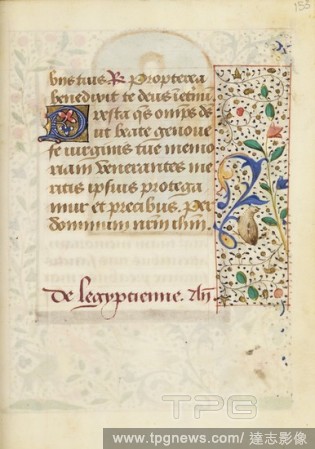 153
bus tuis R Propterea
benedixit te deus in etnū
Presta q̄s omps ds
ut beate genoue
fe uirginis tue memo
riam venerantes me
ritis ipsius protega
mur et precibus. Per
dominum nrm̄ ihm̄.
De legyptienne. añ
TPG
www.tpgnews.com/ 達志影像